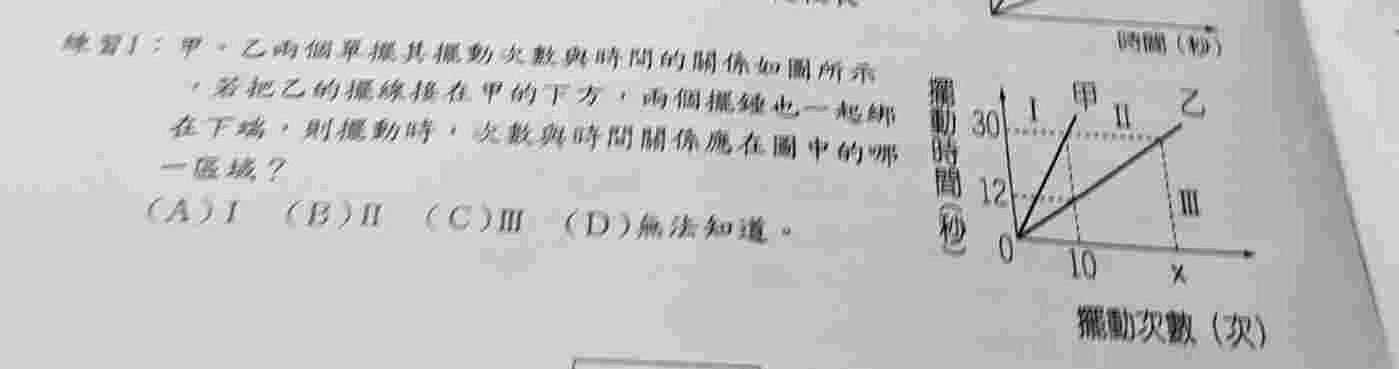 時間（秒）
練習1：甲、乙兩個單擺其擺動次數與時間的關係如圖所示
，若把乙的擺線接在甲的下方，兩個擺錘也一起綁
在下端，則擺動時，次數與時間關係應在圖中的哪
一區域？
（A）I （B）II （C）III （D）無法知道。
擺動時間（秒）
I 甲 II 乙
30
12
III
0 10 x
擺動次數（次）